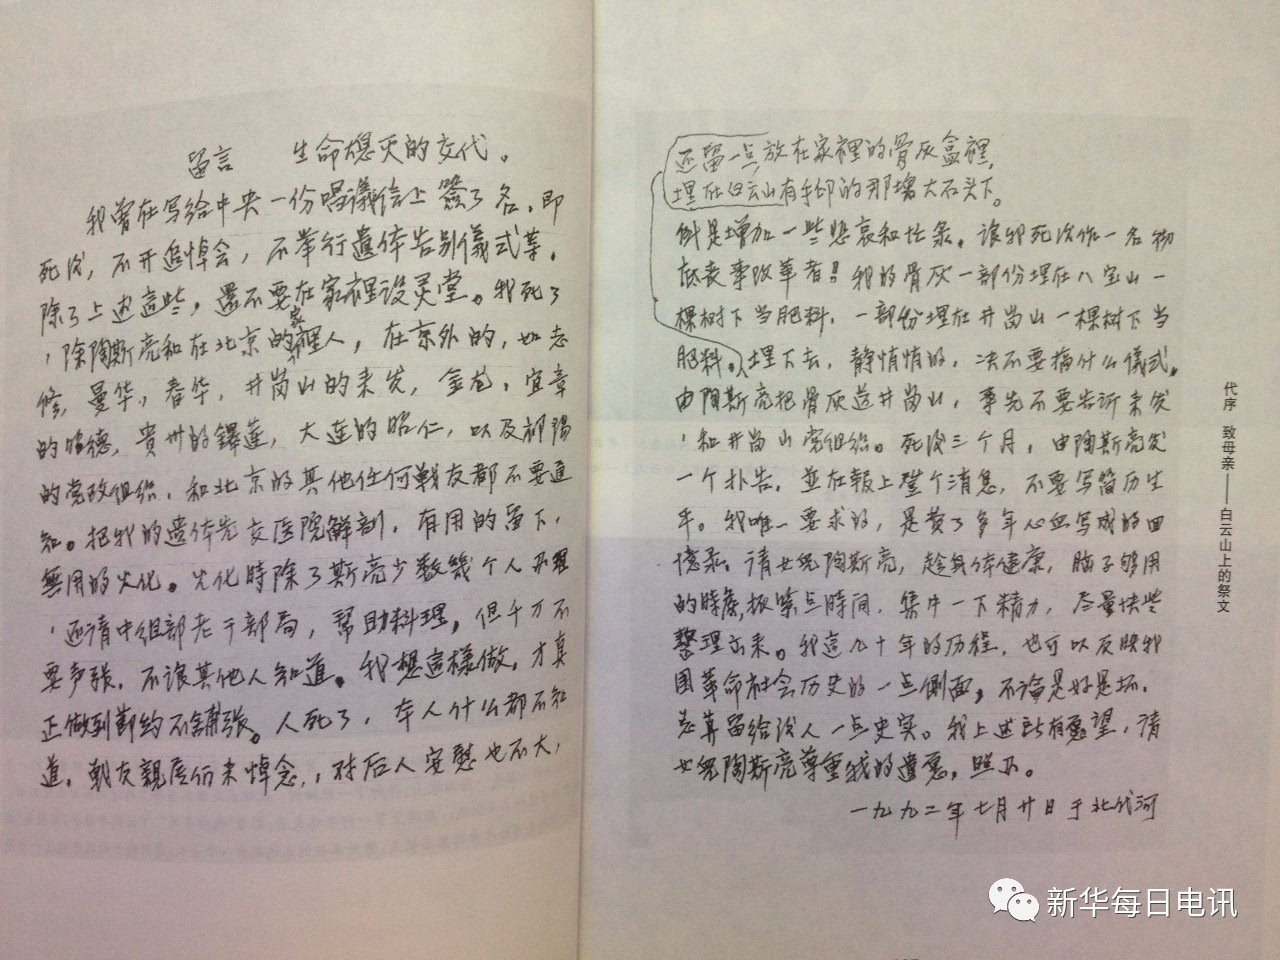 留言　　生命熄灭的交代。
我曾在写给中央一份倡議信上簽了名，即
死后，不开追悼会，不举行遺体告别儀式等。
除了上边這些，還不要在家裡设灵堂。我死了
，除陶斯亮和在北京的家裡人，在京外的，如志
修，曼华，春华，井岗山的来发，金苍，宜章
的昭德，貴州的鐸蓮，大连的昭仁，以及祁陽
的党政组织，和北京的其他任何戰友都不要通
知。把我的遺体先交医院解剖，有用的留下，
無用的火化。火化時除了斯亮少数幾个人办理
，还请中组部老干部局，帮助料理，但千万不
要声張，不讓其他人知道。我想這樣做，才真
正做到節约不鋪張。人死了，本人什么都不知
道，戰友親属们来悼念，对后人安慰也不大，
还留一点放在家裡的骨灰盒裡，
埋在白云山有手印的那塊大石头下。
倒是增加一些悲哀和忙碌。讓我死后作一名彻
底丧事改革者！我的骨灰一部份埋在八宝山一
棵树下当肥料，一部份埋在井岗山一棵树下当
肥料。埋下去，静悄悄的，决不要搞什么儀式。
由陶斯亮把骨灰送井岗山，事先不要告訴来发
，和井岗山党组织。死后三个月，由陶斯亮发
一个讣告，並在報上登个消息，不要写简历生
平。我唯一要求的，是费了多年心血写成的回
憶录。请女儿陶斯亮，趁身体健康，脑子够用
的時候，抓紧点時间，集中一下精力，尽量快些
整理出来。我這九十年的历程，也可以反映我
国革命社会历史的一点侧面，不論是好是坏，
总算留给后人一点史实。我上述所有愿望，请
女兒陶斯亮尊重我的遺愿，照办。
一九九二年七月廿日于北代河
代序　致母亲——白云山上的祭文
新华每日电讯